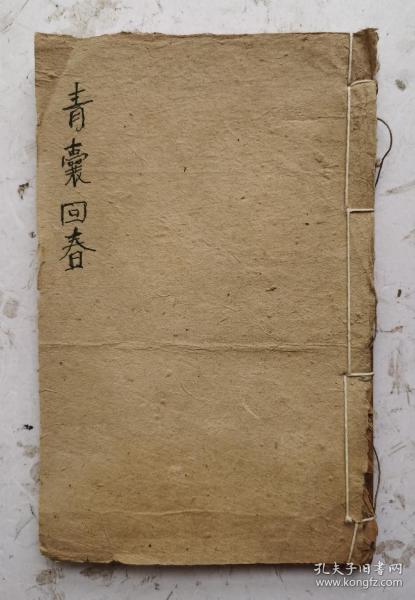 青囊回春
孔夫子旧书网
www.kongfz.com